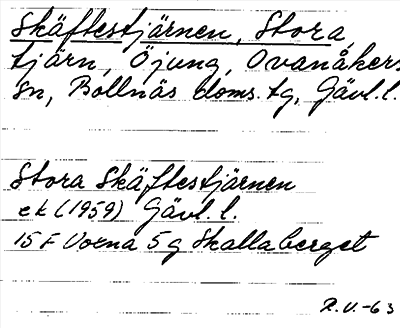 Skäftestjärnen, Stora,
tjärn, Öjung, Ovanåkers
sn, Bollnäs doms. tg, Gävl. l.
Stora Skäftestjärnen
ek (1959) Gävl. l.
15 F Voxna 5 g Skallaberget
R.U.-63